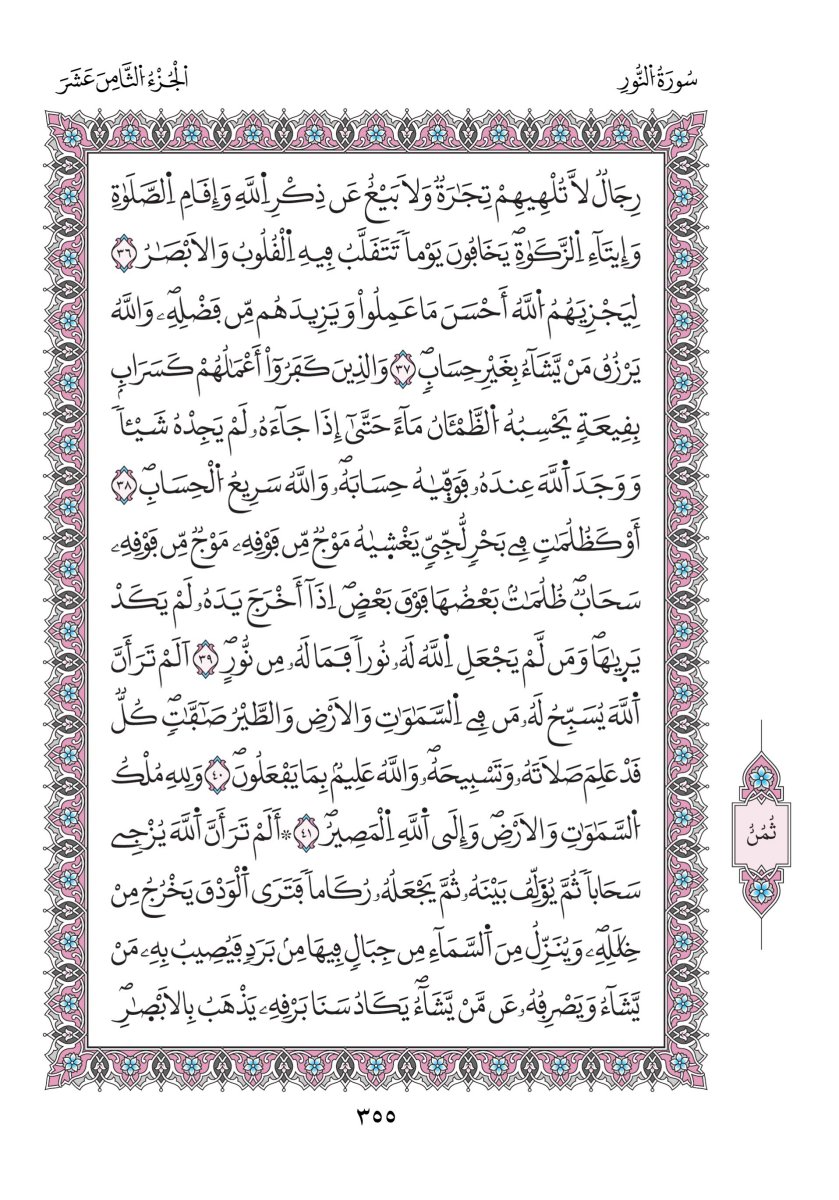 سُورَةُ اُلنُّورِ
اَلْجُزْءُ اُلثَّامِنَ عَشَرَ
رِجَالٌ لَّا تُلْهِيهِمْ تِجَٰرَةٌ وَلَا بَيْعٌ عَن ذِكْرِ اِللَّهِ وَإِقَامِ اِلصَّلَوٰةِ
وَإِيتَآءِ اِلزَّكَوٰةِۖ يَخَافُونَ يَوْماٗ تَتَقَلَّبُ فِيهِ اِلْقُلُوبُ وَالَابْصَٰرُ ٣٦
لِيَجْزِيَهُمُ اُللَّهُ أَحْسَنَ مَا عَمِلُواْ وَيَزِيدَهُم مِّن فَضْلِهِۦۖ وَاللَّهُ
يَرْزُقُ مَنْ يَّشَآءُ بِغَيْرِ حِسَابٖۖ ٣٧ وَالذِينَ كَفَرُوٓاْ أَعْمَٰلُهُمْ كَسَرَابِۢ
بِقِيعَةٖ يَحْسِبُهُ اُلظَّمْـَٔانُ مَآءً حَتَّىٰٓ إِذَا جَآءَهُۥ لَمْ يَجِدْهُ شَيْـٔاٗ
وَوَجَدَ اَللَّهَ عِندَهُۥ فَوَفّ۪يٰهُ حِسَابَهُۥۖ وَاللَّهُ سَرِيعُ اُلْحِسَابِۖ ٣٨
أَوْ كَظُلُمَٰتٖ فِي بَحْرٖ لُّجِّيّٖ يَغْش۪يٰهُ مَوْجٌ مِّن فَوْقِهِۦ مَوْجٌ مِّن فَوْقِهِۦ
سَحَابٌۖ ظُلُمَٰتُۢ بَعْضُهَا فَوْقَ بَعْضٍۖ اِذَآ أَخْرَجَ يَدَهُۥ لَمْ يَكَدْ
يَر۪يٰهَاۖ وَمَن لَّمْ يَجْعَلِ اِللَّهُ لَهُۥ نُوراٗ فَمَا لَهُۥ مِن نُّورٍۖ ٣٩ اَلَمْ تَرَ أَنَّ
اَللَّهَ يُسَبِّحُ لَهُۥ مَن فِي اِلسَّمَٰوَٰتِ وَالَارْضِ وَالطَّيْرُ صَٰٓفَّٰتٖۖ كُلّٞ
قَدْ عَلِمَ صَلَاتَهُۥ وَتَسْبِيحَهُۥۖ وَاللَّهُ عَلِيمُۢ بِمَا يَفْعَلُونَۖ ٤٠ وَلِلهِ مُلْكُ
اُلسَّمَٰوَٰتِ وَالَارْضِۖ وَإِلَى اَللَّهِ اِلْمَصِيرُۖ ٤١ ۞أَلَمْ تَرَ أَنَّ اَللَّهَ يُزْجِي
سَحَاباٗ ثُمَّ يُؤَلِّفُ بَيْنَهُۥ ثُمَّ يَجْعَلُهُۥ رُكَاماٗ فَتَرَى اَلْوَدْقَ يَخْرُجُ مِنْ
خِلَٰلِهِۦ وَيُنَزِّلُ مِنَ اَلسَّمَآءِ مِن جِبَالٖ فِيهَا مِنۢ بَرَدٖ فَيُصِيبُ بِهِۦ مَنْ
يَّشَآءُ وَيَصْرِفُهُۥ عَن مَّنْ يَّشَآءُۖ يَكَادُ سَنَا بَرْقِهِۦ يَذْهَبُ بِالَابْصٰ۪رِۖ
ثُمُنُ
٣٥٥